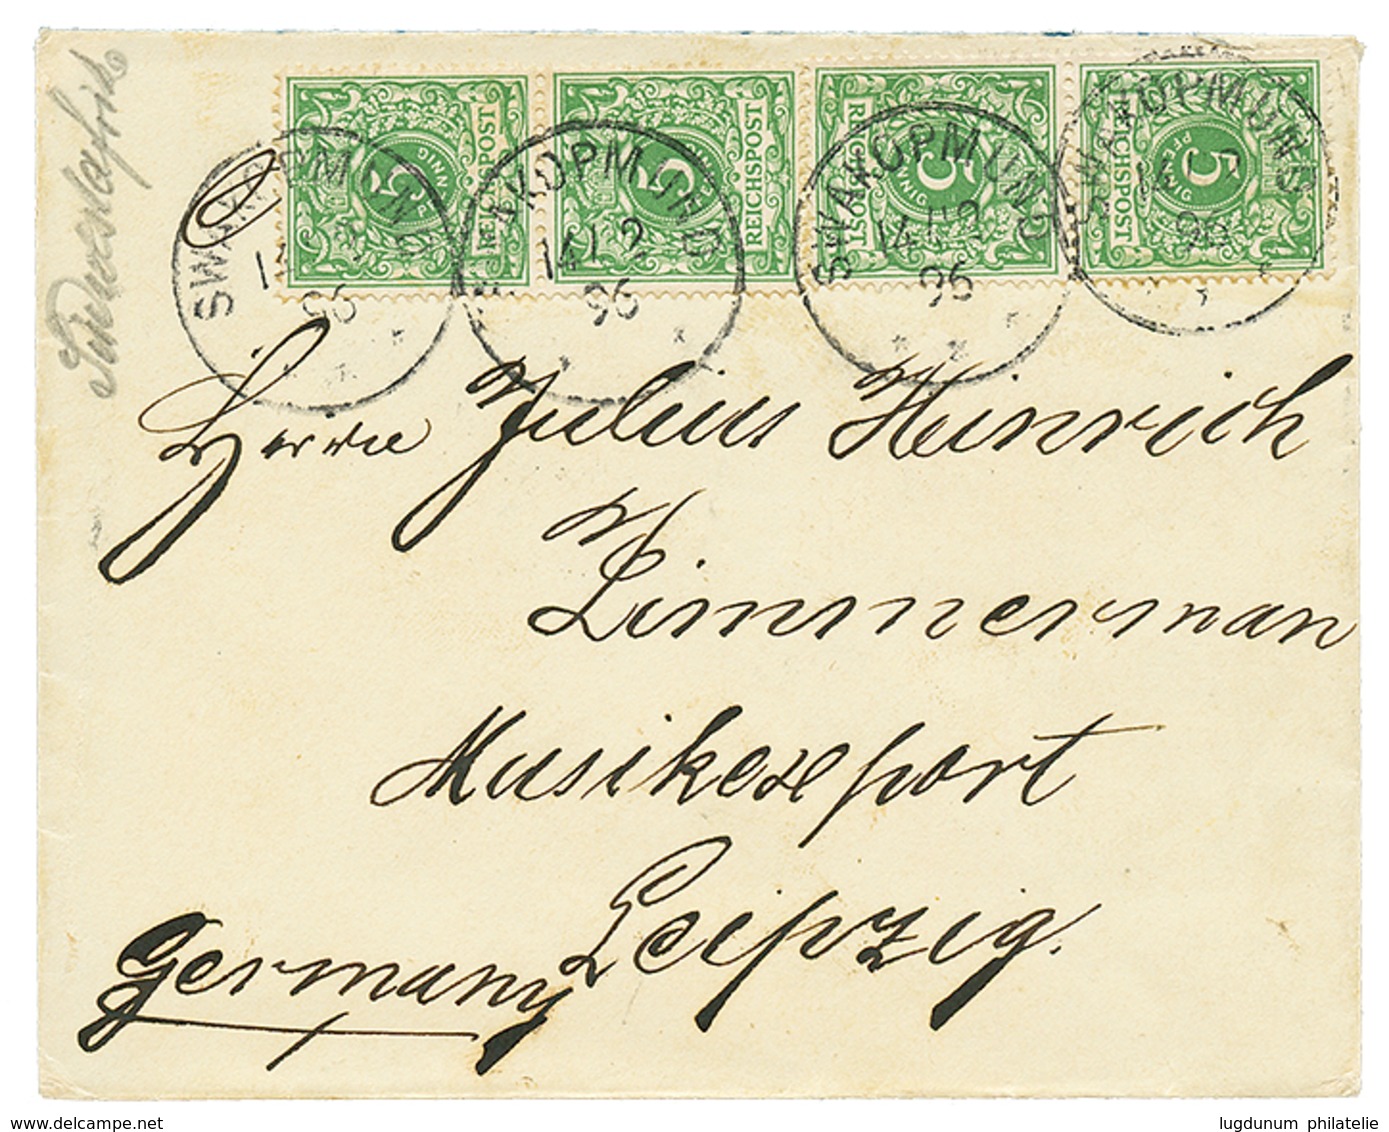 Südwestafrik
SWAKOPMUND
14 12
96
SWAKOPMUND
14 12
96
SWAKOPMUND
14 12
96
SWAKOPMUND
14 12
96
5
PFENNIG
REICHSPOST
5
PFENNIG
REICHSPOST
5
PFENNIG
REICHSPOST
5
PFENNIG
REICHSPOST
Herrn Julius Heinrich
Zimmerman
Musikexport
Leipzig.
Germany
lugdunum philatelie